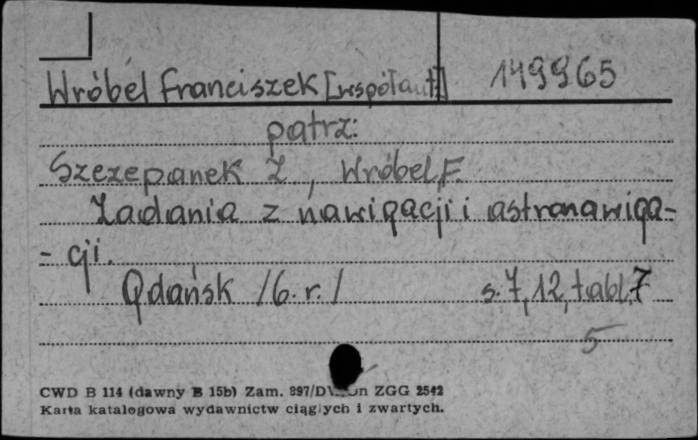 Wróbel Franciszek [współaut.] 149965
patrz:
Szczepanek Z, Wróbel F.
Zadania z nawigacji i astronawiga-
- cji.
Gdańsk /b.r./ s.7,12,tabl.7
5
CWD B 114 (dawny B 15b) Zam. 897/ ZGG 2542
Karta katalogowa wydawnictw ciągłych i zwartych.